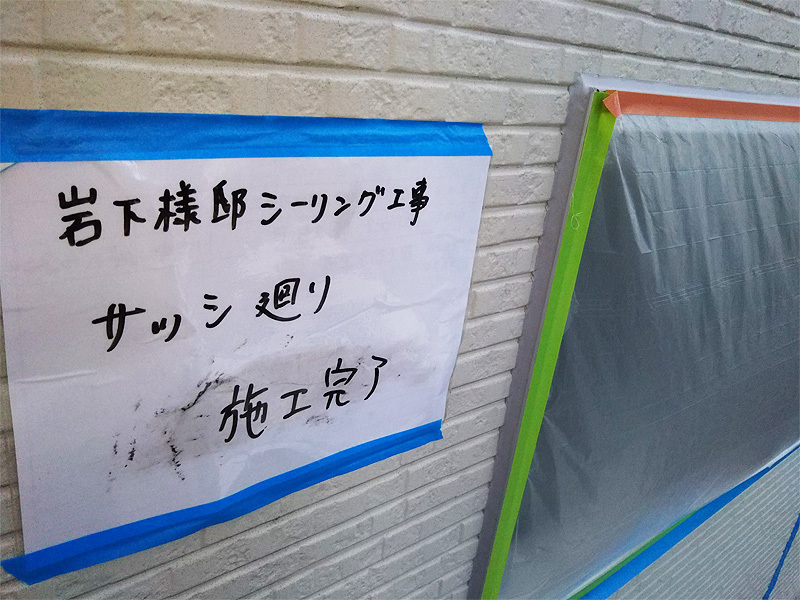 岩下様邸シーリング工事
サッシ廻り
施工完了